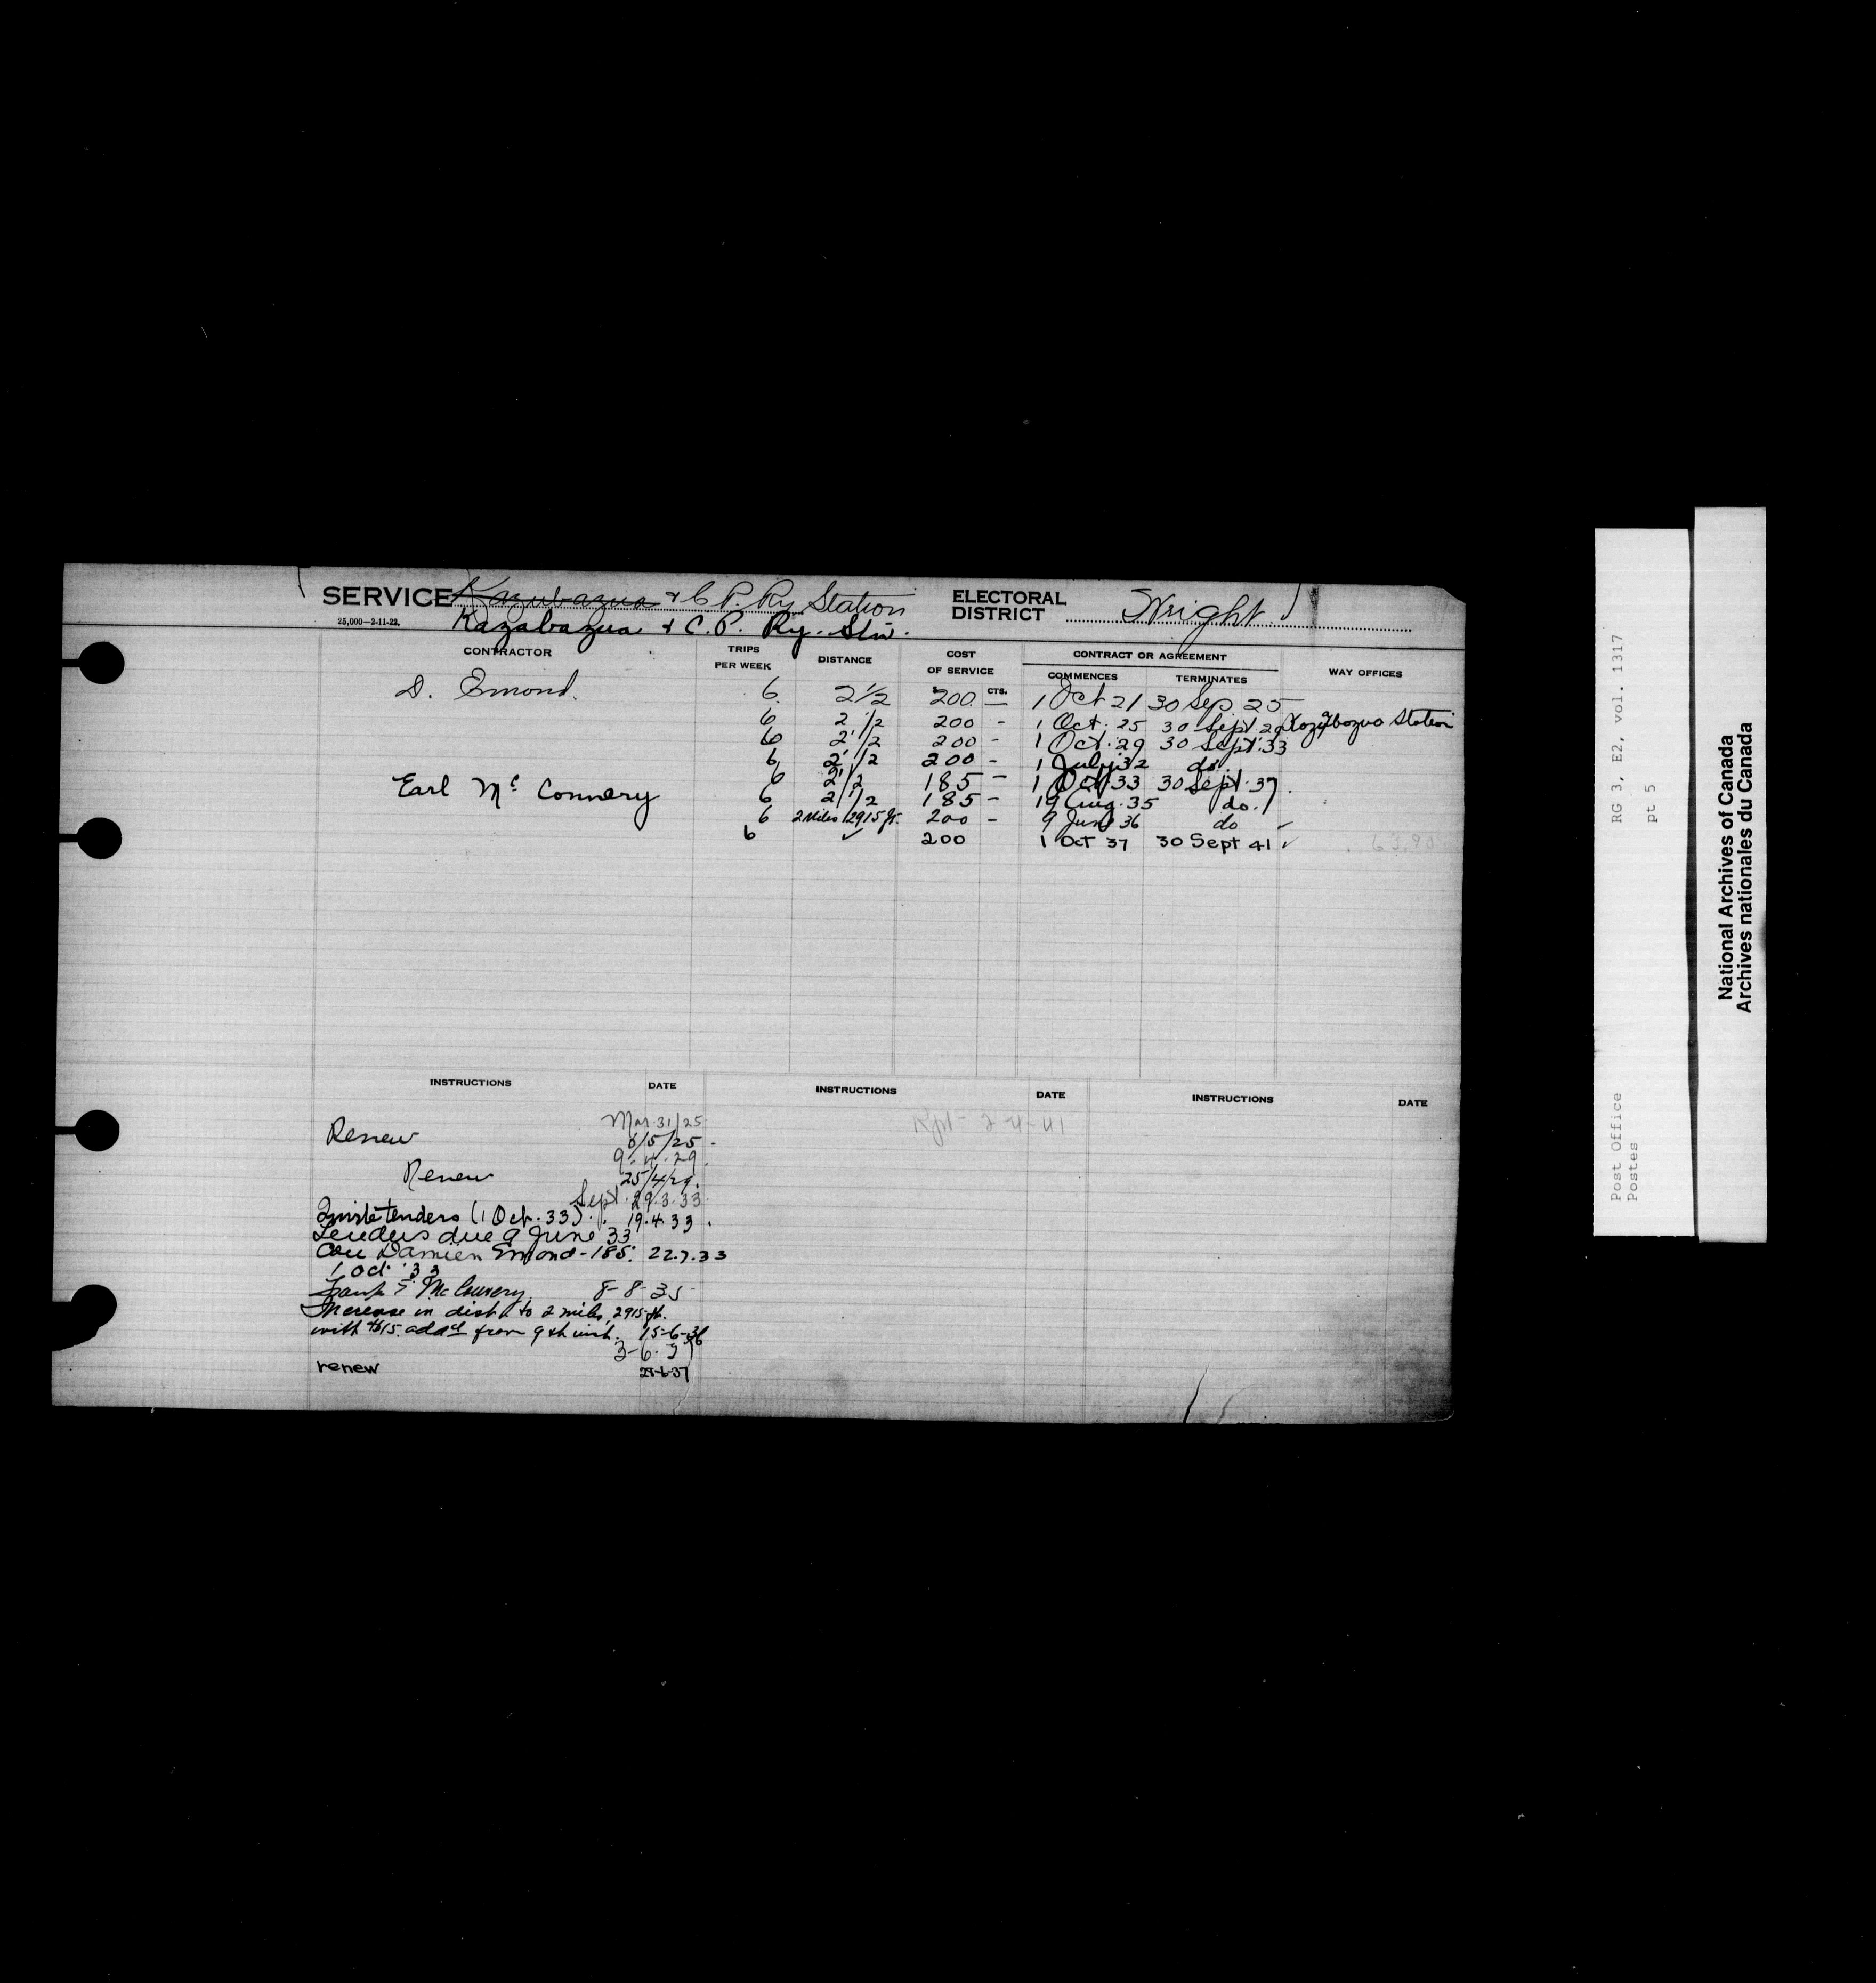 SERVICE Kazubazua & C. P. Ry Station ELECTORAL DISTRICT Wright
25,000—2-11-22. Kazabazua & C. P. Ry. Stn.
CONTRACTOR TRIPS PER WEEK DISTANCE COST OF SERVICE CONTRACT OR AGREEMENT COMMENCES TERMINATES WAY OFFICES
D. Emond. 6 2 1/2 $200 CTS. — 1 Oct 21 30 Sep 25
6 2 1/2 200 - 1 Oct. 25 30 Sept 29 Kazabazua Station
6 2 1/2 200 - 1 Oct. 29 30 Sept. 33
6 2 1/2 200 - 1 July 32 do.
6 2 1/2 185 — 1 Oct 33 30 Sept. 37.
Earl Mc Connery 6 2 1/2 185 - 19 Aug. 35 do.
6 2 Miles 2915 ft. 200 - 9 June 36 do ✓
6 ✓ 200 1 Oct 37 30 Sept 41 ✓ 63.90
INSTRUCTIONS DATE INSTRUCTIONS DATE INSTRUCTIONS DATE
Mar. 31/25 Rpt - 2-4-41
Renew 6/5/25 -
9. 4. 29.
Renew 25/4/29.
Sept. 29.3.33
Invite tenders (1 Oct. 33). 19.4.33.
Tenders due 9 June 33
Damien Emond - 185. 22.7.33
1 Oct. '33
8-8-35
Increase in dist. to 2 miles, 2915 ft.
with $15. addl from 9th inst. 15-6-36
3-6-37
renew 29-6-37
Post Office RG 3, E2, vol. 1317
Postes pt 5
National Archives of Canada
Archives nationales du Canada